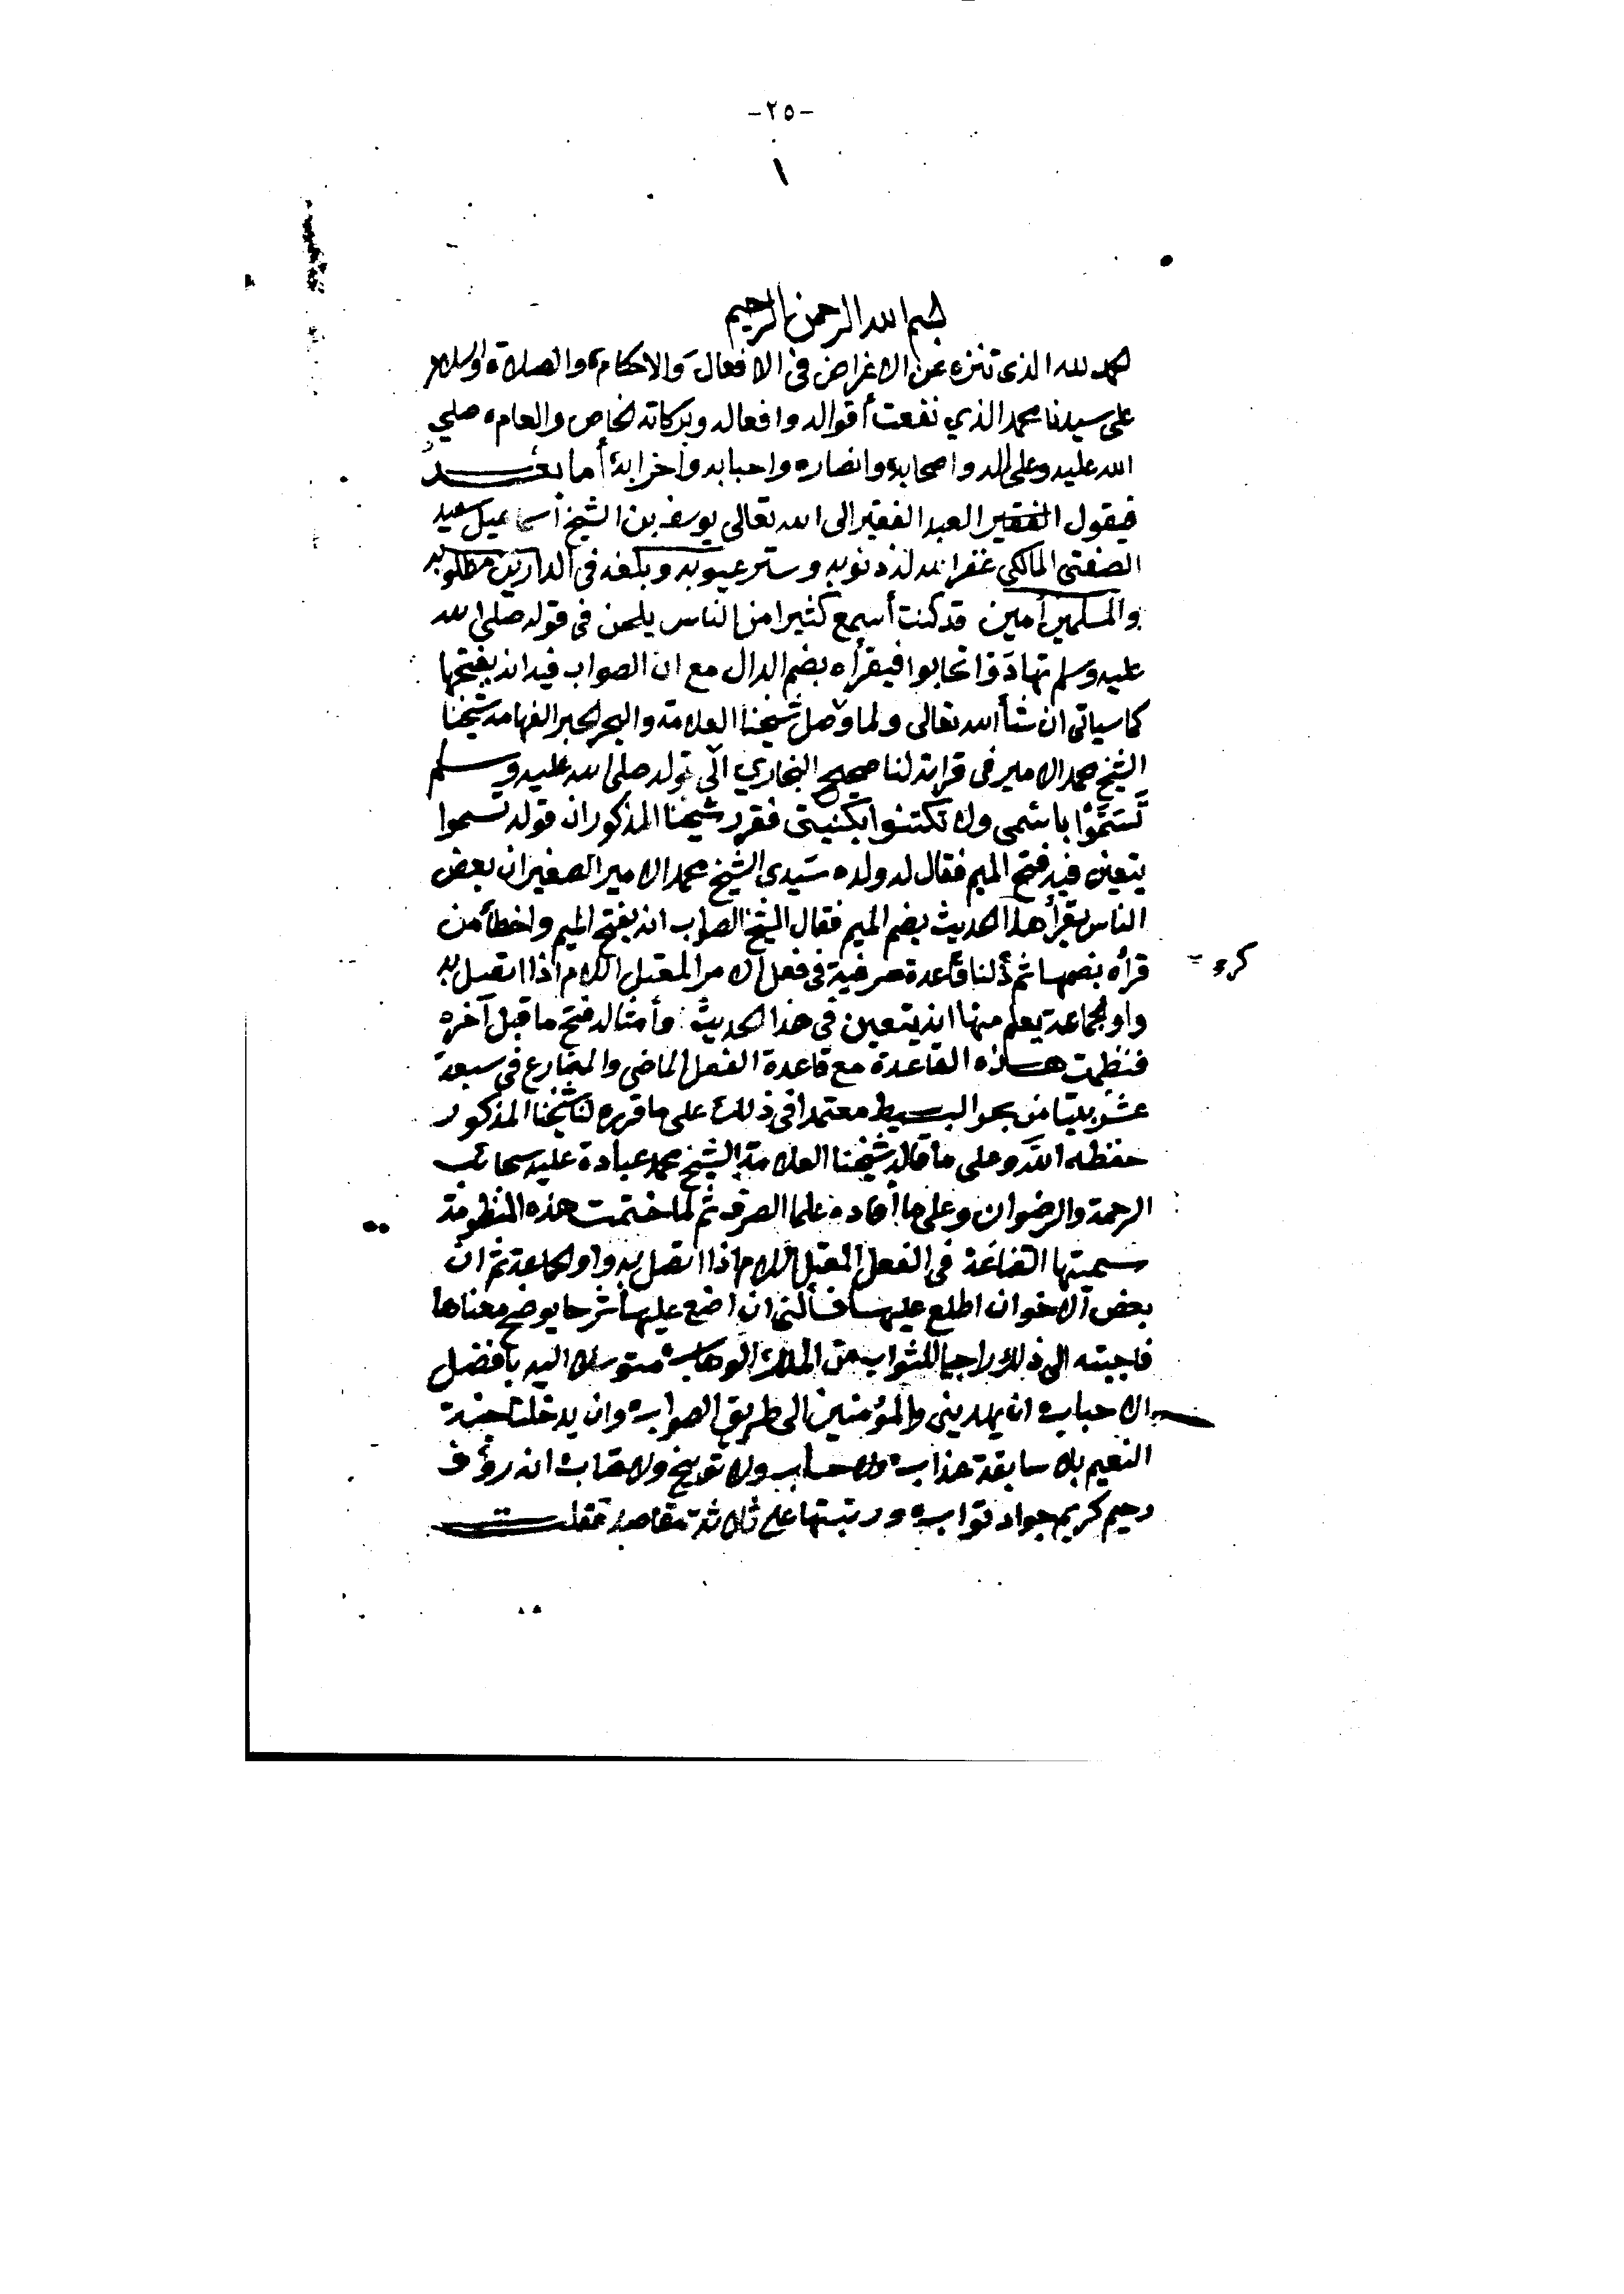 -٢٥-
١
بسم الله الرحمن الرحيم
الحمد لله الذى تنزه عن الاغراض فى الافعال والاحكام والصلاة والسلام
على سيدنا محمد الذي نفعت أقواله وافعاله وبركاته الخاص والعام صلي
الله عليه وعلى اله واصحابه وانصاره واحبابه واحزابه أما بعد
فيقول الفقير العبد الفقير الى الله تعالى يوسف بن الشيخ اسماعيل سعيد
الصفتى المالكى غفر الله له ذنوبه وستر عيوبه وبلغه فى الدارين مطلوبه
والمسلمين أمين قد كنت أسمع كثيرا من الناس يلحن فى قوله صلى الله
عليه وسلم تهادَوْا تحابوا فيقرأه بضم الدال مع ان الصواب فيه انه بفتحها
كما سياتى ان شأ الله تعالى ولما وصل شيخنا العلامة والبحر الحبر الفهامة شيخنا
الشيخ محمد الامير فى قرأته لنا صحيح البخاري الى قوله صلى الله عليه وسلم
تَسَمَّوْا باسْمى ولا تكتنوا بكنيتى فقرر شيخنا المذكور ان قوله تسموا
يتعين فيه فتح الميم فقال له ولده سيدى الشيخ محمد الامير الصغير ان بعض
الناس يقرأ هذا الحديث بضم الميم فقال الشيخ الصواب انه بفتح الميم واخطأ من
قرأه بضمها ثم ذكر لنا قاعدة صرفية فى فعل الامر المعتل اللام اذا اتصل به
واو الجماعة يعلم منها انه يتعين فى هذا الحديث وأمثاله فتح ما قبل آخره
فنظمت هذه القاعدة مع قاعدة الفعل الماضى والمضارع فى سبعة
عشر بيتا من بحر البسيط معتمدا فى ذلك على ما قرره لنا شيخنا المذكور
حفظه الله وعلى ما قاله شيخنا العلامة الشيخ محمد عبادة عليه سحائب
الرحمة والرضوان وعلى ما أفاده علما الصرف ثم لما ختمت هذه المنظومة
سميتها القناعة فى الفعل المعتل اللام اذا اتصل به واو الجماعة ثم ان
بعض الاخوان اطلع عليها فسألنى ان اضع عليها شرحا يوضح معناها
فاجبته الى ذلك راجيا للثواب من الملك الوهاب متوسلا اليه بافضل
الاحباب ان يهدينى والمؤمنين الى طريق الصواب وان يدخلنا جنة
النعيم بلا سابقة عذاب ولا حساب ولا توبيخ ولا عقاب انه رؤف
رحيم كريم جواد تواب ورتبتها على ثلاثة مقاصد فقلت